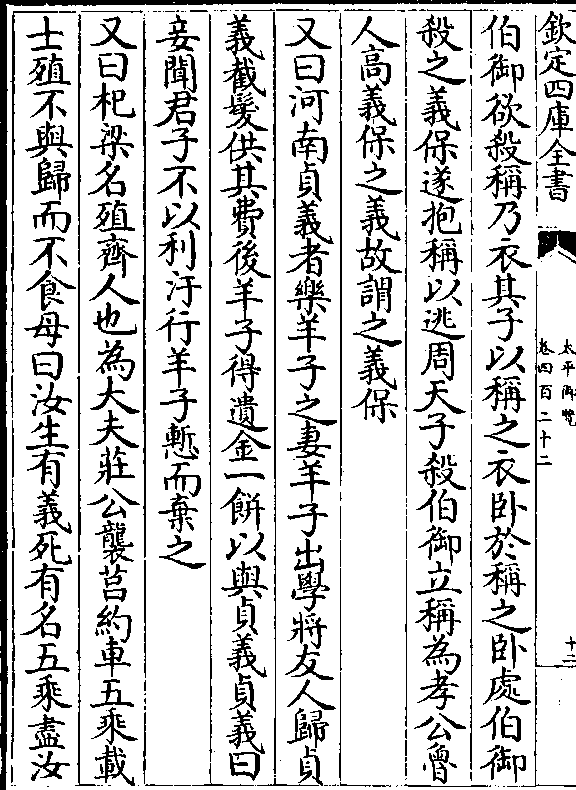 欽定四庫全書
太平御覽
卷四百二十二
十二
伯御欲殺稱乃衣其子以稱之衣卧於稱之卧處伯御
殺之義保遂抱稱以逃周天子殺伯御立稱為孝公魯
人高義保之義故謂之義保
又曰河南貞義者樂羊子之妻羊子出學將友人歸貞
義截髮供其費後羊子得遺金一餅以與貞義貞義曰
妾聞君子不以利汙行羊子慙而棄之
又曰杞梁名殖齊人也為大夫莊公襲莒約車五乘載
士殖不與歸而不食母曰汝生有義死有名五乘盡汝